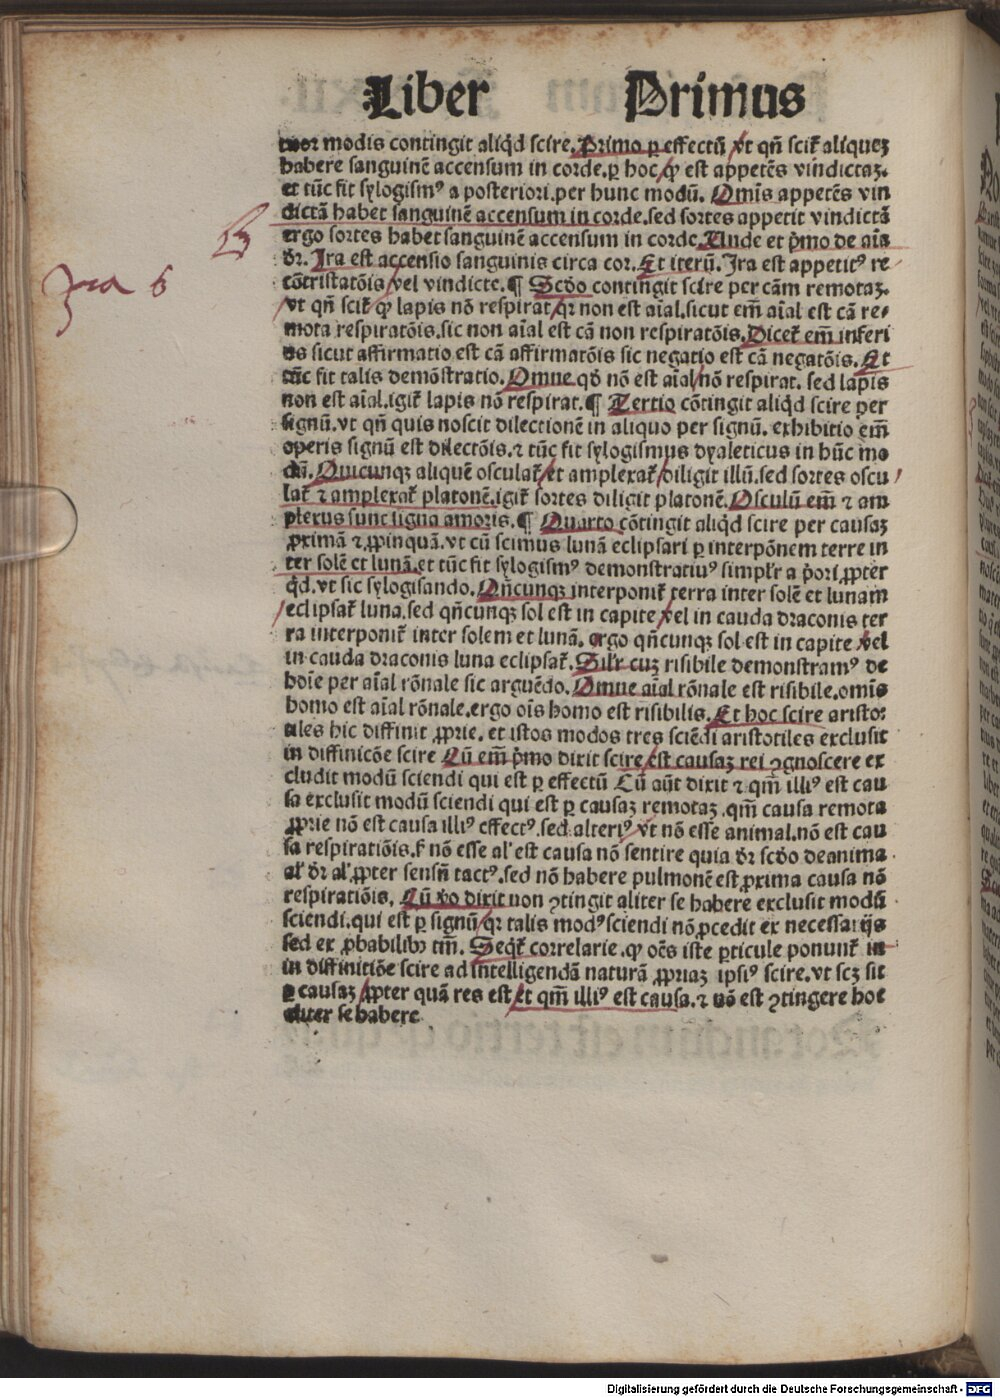 Liber Primus
tuor modis contingit aliq̇d scire. Primo ꝑ effectū vt qn̄ scit᷑ aliquez
habere sanguinē accensum in corde. ꝑ hoc ꝙ est appetēs vindictaꝫ.
et tūc fit sylogismꝰ a posteriori. per hunc modū. Omīs appetēs vin
dictā habet sanguinē accensum in corde. sed sortes appetit vindictā
ergo sortes habet sanguinē accensum in corde. Unde et p̄mo de aīa
dr̄. Ira est accensio sanguinis circa cor. Et iterū. Ira est appetitꝰ re
cōtristatōis vel vindicte. ¶ Scd̄o contingit scire per cām remotaꝫ.
vt qn̄ scit᷑ ꝙ lapis nō respirat qꝛ non est aīal. sicut em̄ aīal est cā re⸗
mota respiratōis. sic non aīal est cā non respiratōis. Dicet᷑ em̄ inferi
us sicut affirmatio est cā affirmatōis sic negatio est cā negatōis. Et
tūc fit talis demōstratio. Omne qd̄ nō est aīal nō respirat. sed lapis
non est aīal. igit᷑ lapis nō respirat. ¶ Tertio cōtingit aliq̇d scire per
signū. vt qn̄ quis noscit dilectionē in aliquo per signū. exhibitio em̄
operis signū est dilectōis. ⁊ tūc fit sylogismus dyaleticus in hūc mo
dū. Quicunqꝫ aliquē osculat᷑ et amplexat᷑ diligit illū. sed sortes oscu
lat᷑ ⁊ amplexat᷑ platonē. igit᷑ sortes diligit platonē. Osculū em̄ ⁊ am
plexus sunt signa amoris. ¶ Quarto cōtingit aliq̇d scire per causaꝫ
ꝓximā ⁊ ꝓpinquā. vt cū scimus lunā eclipsari ꝑ interpōnem terre in
ter solē et lunā. et tūc fit sylogismꝰ demonstratiuꝰ simplr̄ a p̄ori ꝓpter
q̇d. vt sic sylogisando. Qn̄cunqꝫ interponit᷑ terra inter solē et lunam
eclipsat᷑ luna. sed qn̄cunqꝫ sol est in capite vel in cauda draconis ter
ra interponit᷑ inter solem et lunā. ergo qn̄cunqꝫ sol est in capite vel
in cauda draconis luna eclipsat᷑. Silr̄ cuꝫ risibile demonstramꝰ de
hoīe per aīal rōnale sic arguēdo. Omne aīal rōnale est risibile. omīs
homo est aīal rōnale. ergo oīs homo est risibilis. Et hoc scire aristo⸗
tiles hic diffinit ꝓprie. et istos modos tres sciēdi aristotiles exclusit
in diffinicōe scire Cū em̄ p̄mo dixit scire est causaꝫ rei ꝯgnoscere ex
cludit modū sciendi qui est ꝑ effectū Cū aūt dixit ⁊ qm̄ illiꝰ est cau
sa exclusit modū sciendi qui est ꝑ causaꝫ remotaꝫ. qm̄ causa remota
ꝓprie nō est causa illiꝰ effectꝰ. sed alteriꝰ vt nō esse animal. nō est cau
sa respiratiōis. ẜ nō esse al̓ est causa nō sentire quia dr̄ scd̄o de anima
al̓ dr̄ al̓ ꝓpter sensū tactꝰ. sed nō habere pulmonē est ꝓxima causa nō
respiratiōis. Cū v̄o dixit non ꝯtingit aliter se habere exclusit modū
sciendi. qui est ꝑ signū qꝛ talis modꝰ sciendi nō ꝓcedit ex necessarijs
sed ex ꝓbabilibꝰ tm̄. Seqt᷑ correlarie. ꝙ oēs iste ꝑticule ponunt᷑ in
in diffinitiōe scire ad intelligendā naturā ꝓpriaꝫ ipsiꝰ scire. vt scꝫ sit
ꝑ causaꝫ ꝓpter quā res est et qm̄ illiꝰ est causa. ⁊ nō est ꝯtingere hoc
aliter se habere
Ira 6
Digitalisierung gefördert durch die Deutsche Forschungsgemeinschaft - DFG